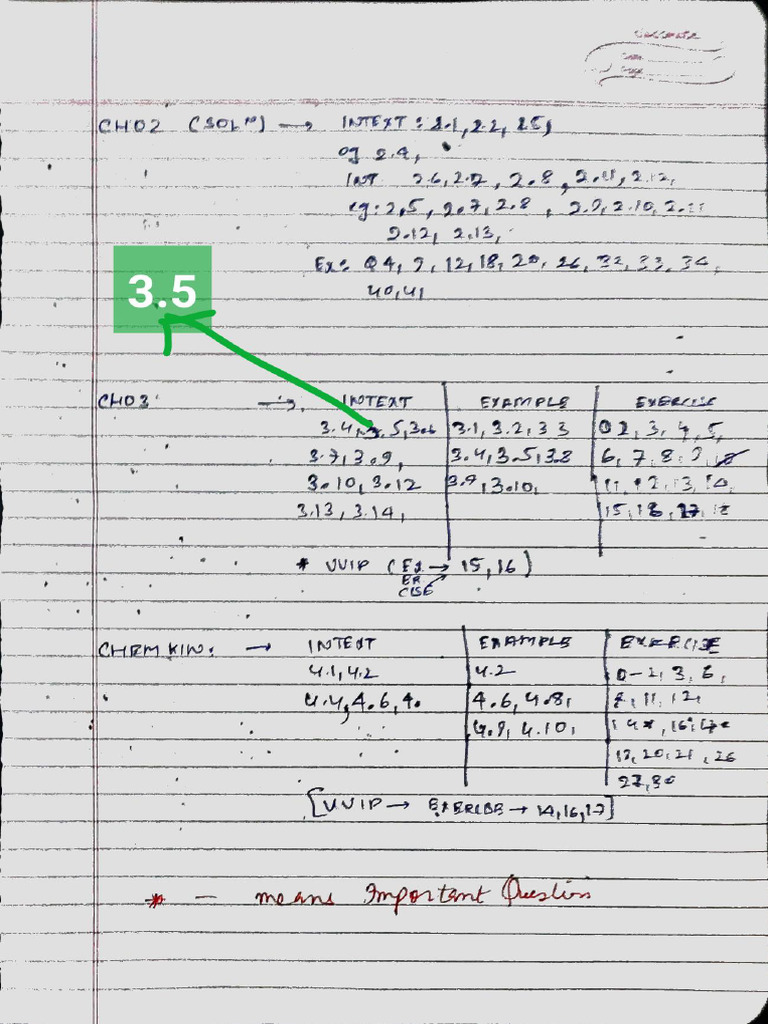 CH02 (SOLⁿ) → INTEXT: 2.1, 2.2, 2.5,
eg 2.4,
INT 2.6, 2.7, 2.8, 2.11, 2.12,
eg: 2.5, 2.7, 2.8, 2.9, 2.10, 2.11
2.12, 2.13,
Ex: Q4, 9, 12, 18, 20, 26, 32, 33, 34,
40, 41
3.5
CH03 → INTEXT EXAMPLE EXERCISE
3.4, 3.5, 3.6 3.1, 3.2, 3.3 Q 2, 3, 4, 5,
3.7, 3.9, 3.4, 3.5, 3.8 6, 7, 8, 9,
3.10, 3.12 3.9, 3.10, 11, 12, 13, 14,
3.13, 3.14, 15, 16, 17, 18
* VVIP (EXERCISE → 15, 16)
CHEM KIN: → INTEXT EXAMPLE EXERCISE
4.1, 4.2 4.2 3, 6,
4.4, 4.6, 4. 4.6, 4.8, 11, 12,
4.9, 4.10, 16,
20, 21, 26
27, 30
[VVIP → EXERCISE → 14, 16, 17]
* — means Important Question